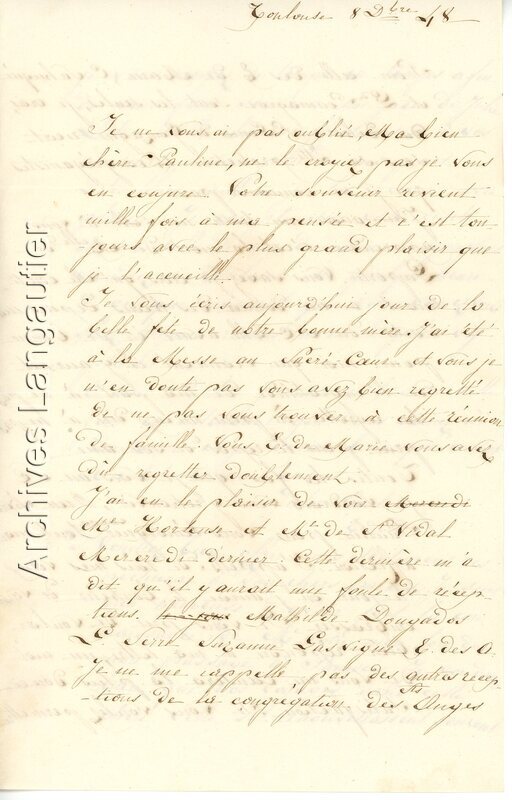 Toulouse 8 Dbre 48
Je ne vous ai pas oubliée, Ma bien
chère Pauline, ne le croyez pas je vous
en conjure. Votre souvenir revient
mille fois à ma pensée et c'est tou-
jours avec le plus grand plaisir que
je l'accueille.
Je vous écris aujourd'hui jour de la
belle fête de notre bonne mère. J'ai été
à la Messe au Sacré-Cœur et vous je
n'en doute pas vous avez bien regretté
de ne pas vous trouver à cette réunion
de famille. Vous E. de Marie vous avez
dû regretter doublement.
J'ai eu le plaisir de vous
Hortense et Me de St Vidal
Mercredi dernier cette dernière m'a
dit qu'il y aurait une foule de récep
tions. Mathilde Dougados
L. Serre Suzanne Lassigue E. des O.
Je ne me rappelle pas des autres récep-
-tions de la congrégation des Sts Anges
Archives Langautier